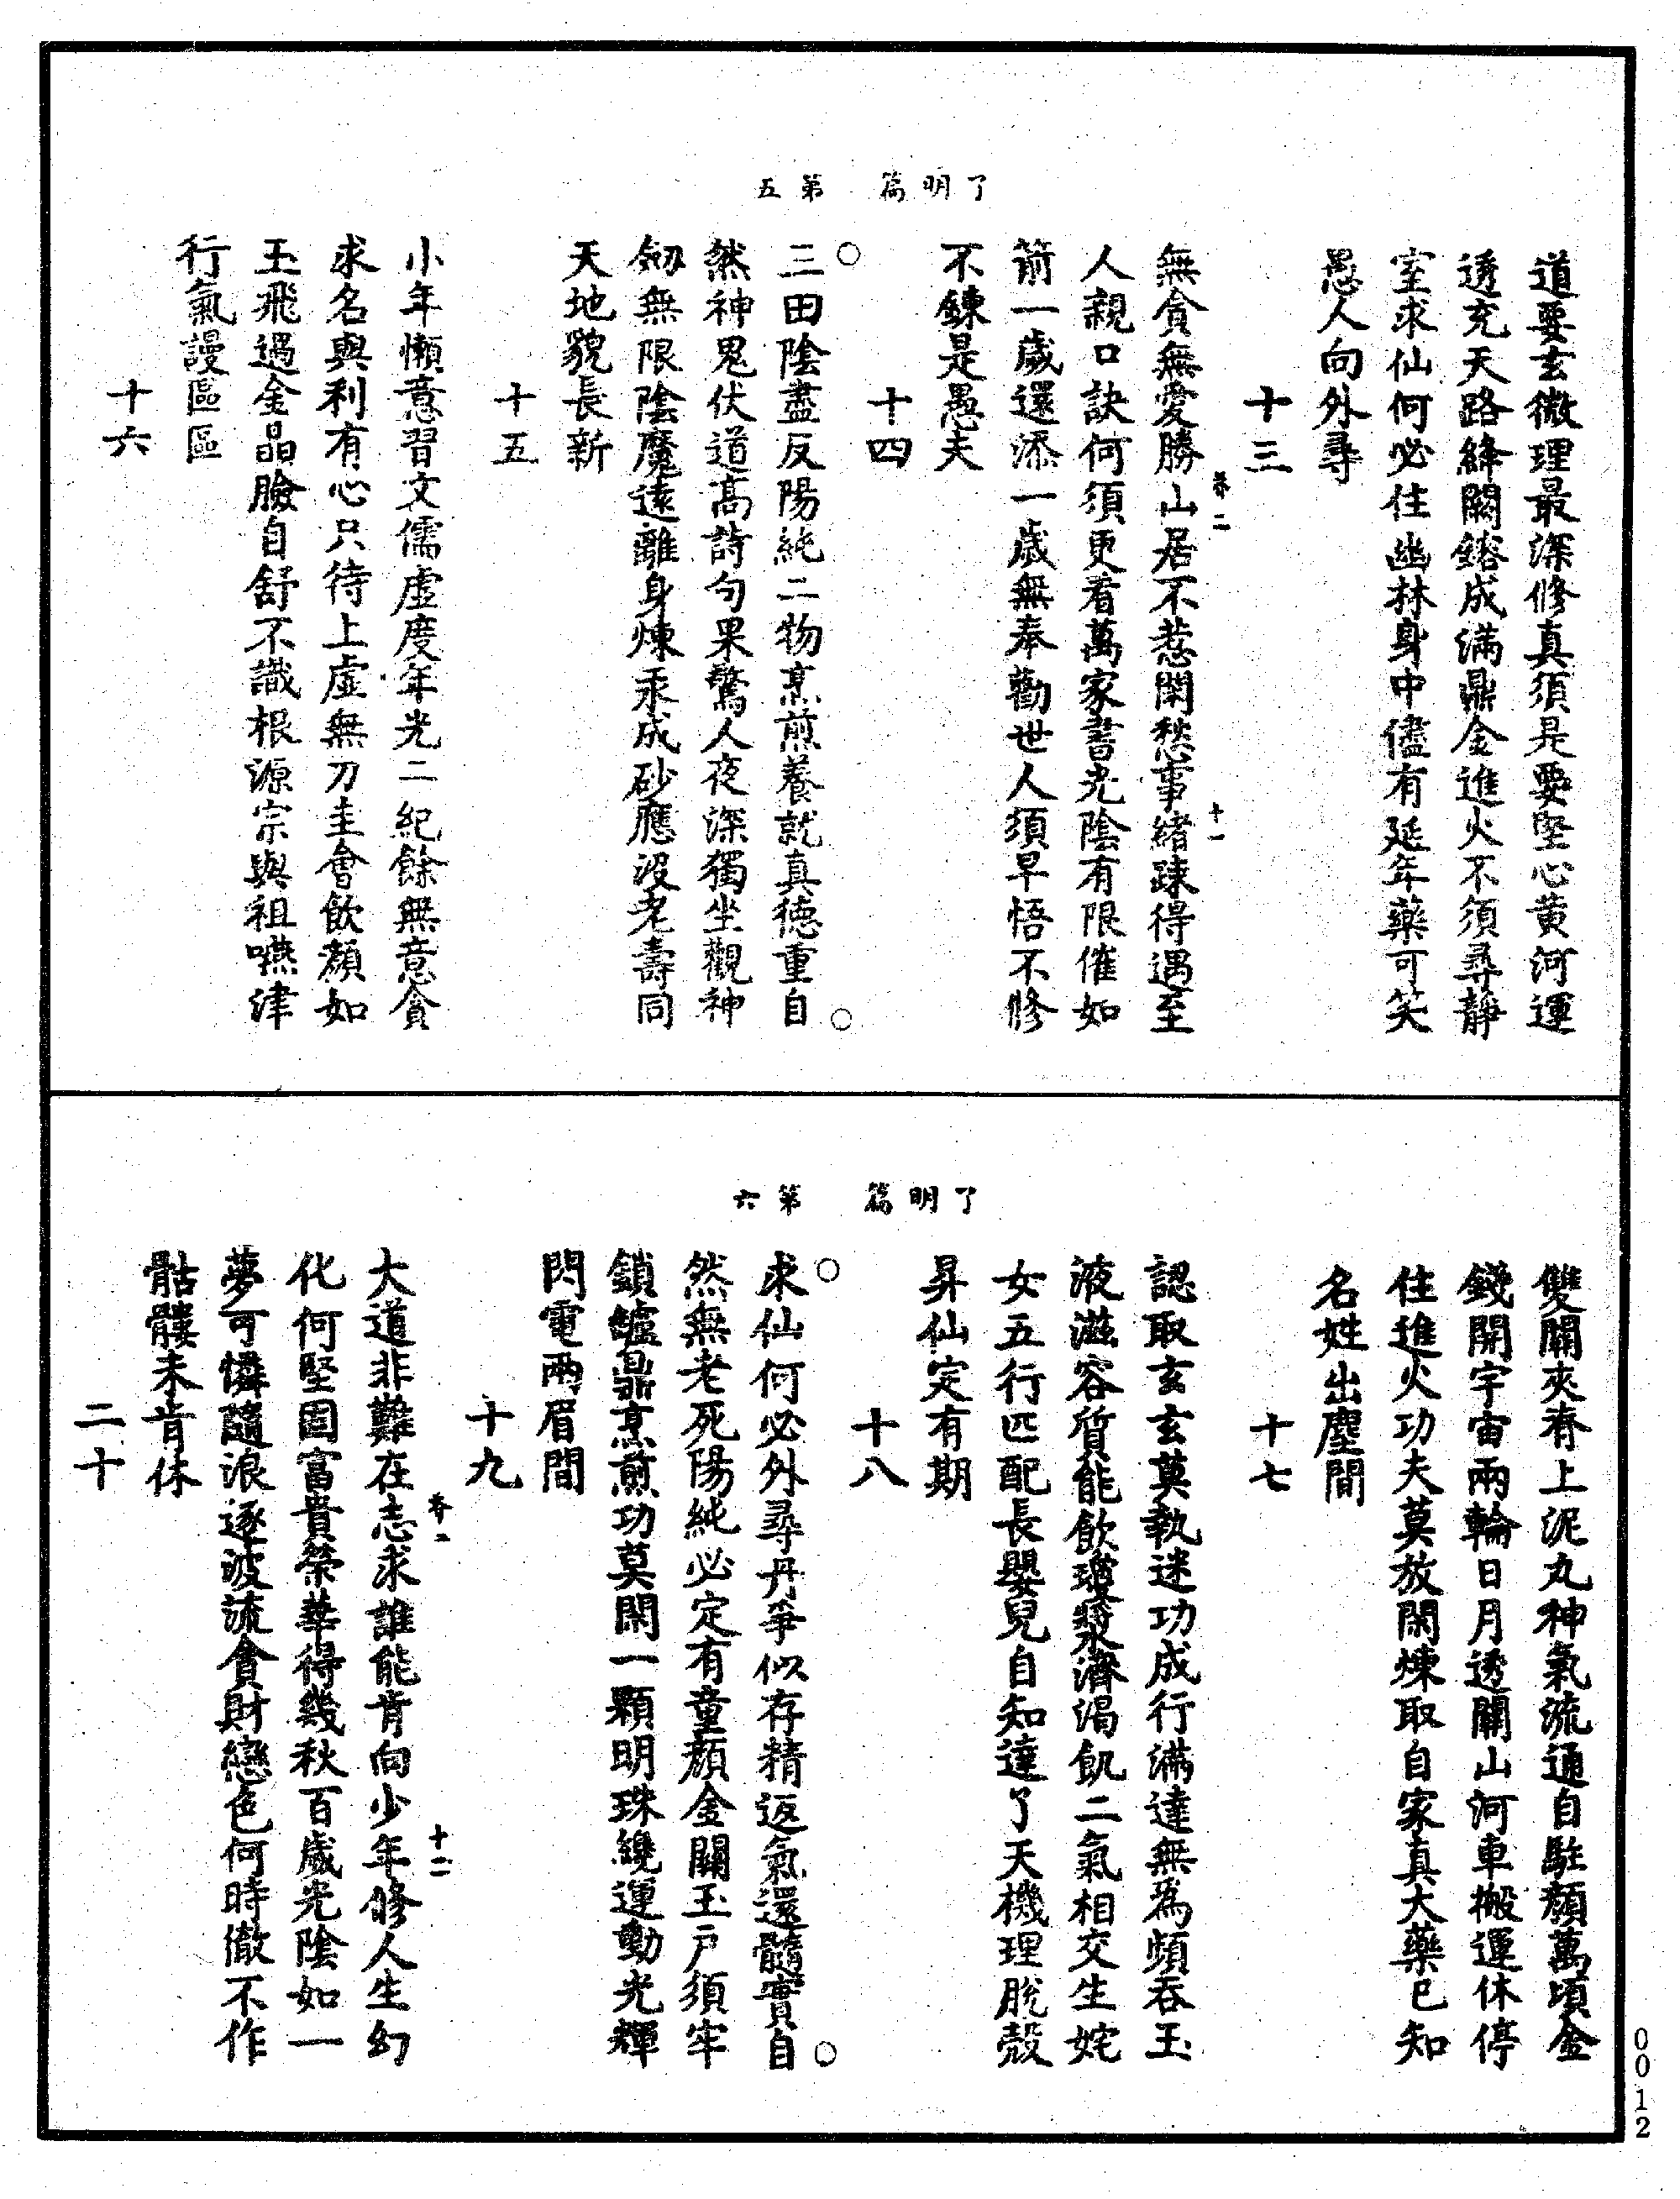 了明篇　第五
道要玄微理最深修真須是要堅心黄河運
透充天路絳闕鎔成滿鼎金進火不須尋靜
室求仙何必住幽林身中儘有延年藥可笑
愚人向外尋
十三
卷二
十一
無貪無愛勝山居不惹閑愁事緒踈得遇至
人親口訣何須更看萬家書光陰有限催如
箭一歲還添一歲無奉勸世人須早悟不修
不鍊是愚夫
十四
三田陰盡反陽純二物烹煎養就真德重自
然神鬼伏道高詩句果驚人夜深獨坐觀神
劒無限陰魔遠離身煉汞成砂應沒老壽同
天地貌長新
十五
小年懶意習文儒虛度年光二紀餘無意貪
求名與利有心只待上虛無刀圭會飲顏如
玉飛過金晶臉自舒不識根源宗與祖嚥津
行氣謾區區
十六
了明篇　第六
雙關夾脊上泥丸神氣流通自駐顏萬頃金
錢開宇宙兩輪日月透關山河車搬運休停
住進火功夫莫放閑煉取自家真大藥已知
名姓出塵間
十七
認取玄玄莫執迷功成行滿達無爲頻吞玉
液滋容質能飲瓊漿濟渴飢二氣相交生姹
女五行匹配長嬰兒自知達了天機理脫殼
昇仙定有期
十八
求仙何必外尋丹爭似存精返氣還髓實自
然無老死陽純必定有童顏金關玉戶須牢
鎖鑪鼎烹煎功莫閑一顆明珠纔運動光輝
閃電兩眉間
十九
卷二
十二
大道非難在志求誰能肯向少年修人生幻
化何堅固富貴榮華得幾秋百歲光陰如一
夢可憐隨浪逐波流貪財戀色何時徹不作
骷髏未肯休
二十
0012